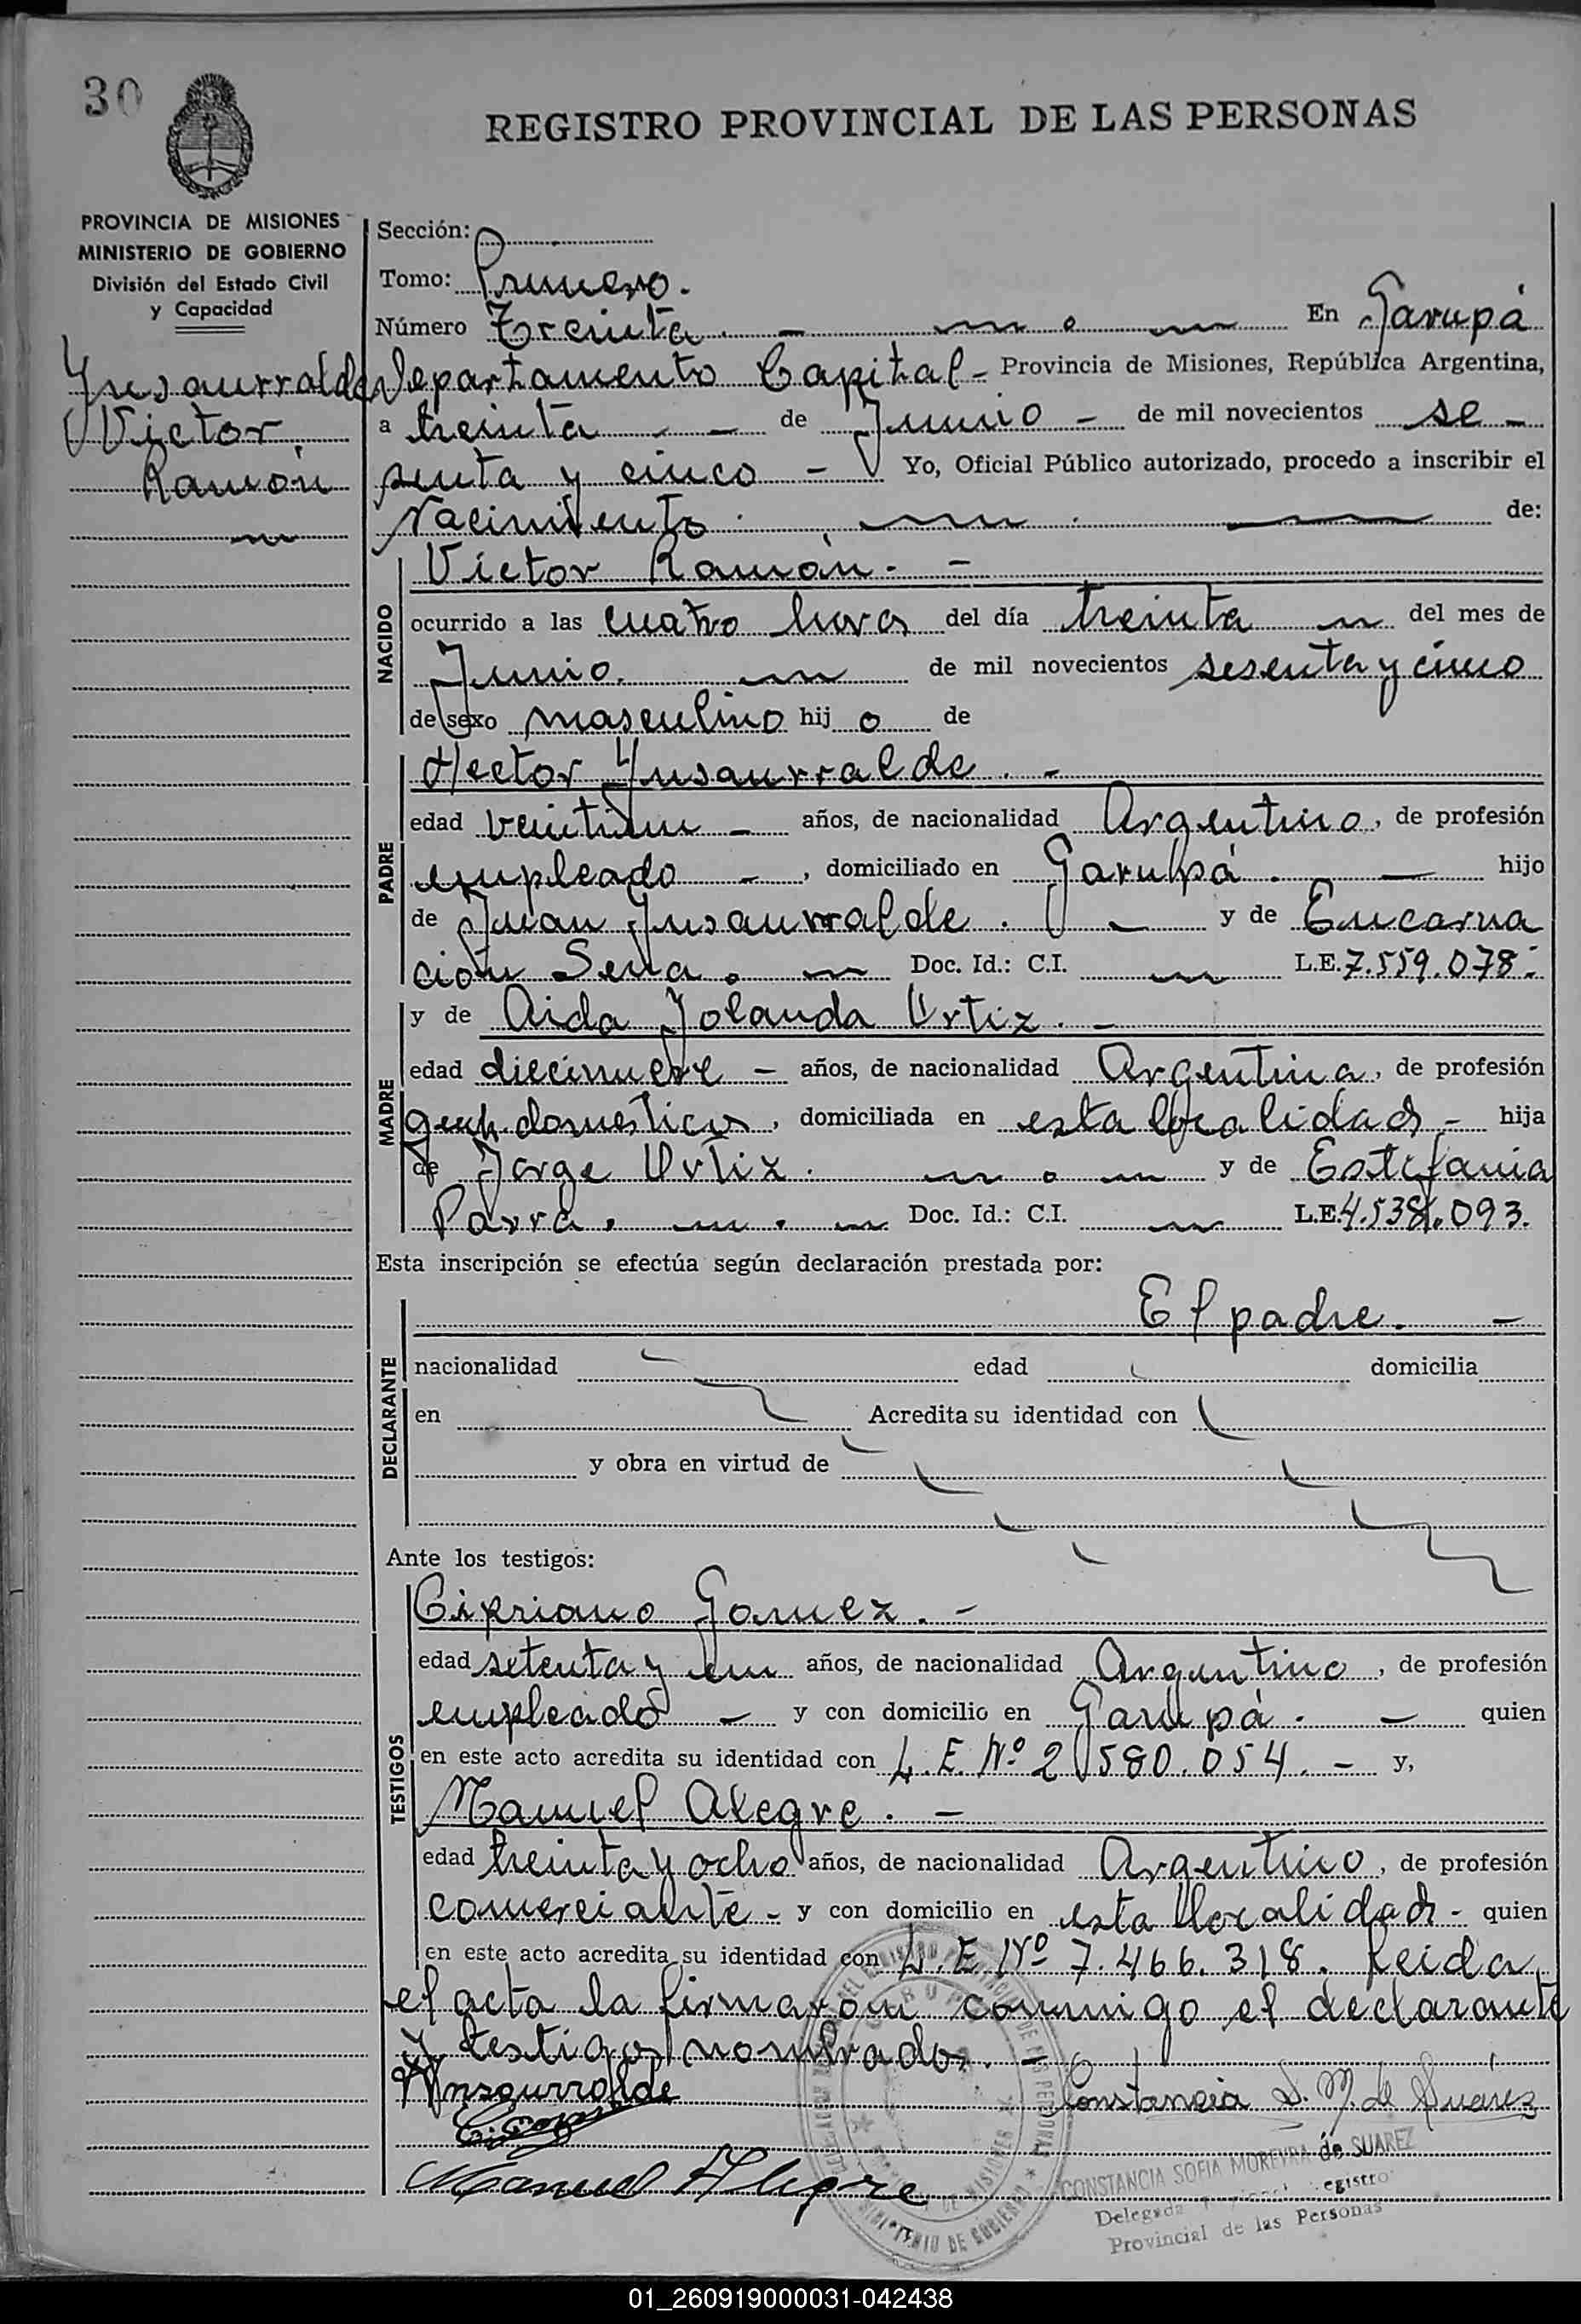 30
REGISTRO PROVINCIAL DE LAS PERSONAS
PROVINCIA DE MISIONES
MINISTERIO DE GOBIERNO
División del Estado Civil
y Capacidad
Ynsaurralde
Victor
Ramón
Sección:
Tomo: Primero.
Número Treinta . - En Garupá
Departamento Capital - Provincia de Misiones, República Argentina,
a treinta - - de Junio - de mil novecientos se -
senta y cinco - Yo, Oficial Público autorizado, procedo a inscribir el
Nacimiento de:
NACIDO
Victor Ramón. -
ocurrido a las cuatro horas del día treinta del mes de
Junio. de mil novecientos sesenta y cinco
de sexo masculino hijo de
PADRE
Hector Ynsaurralde . -
edad veintiun - años, de nacionalidad Argentino, de profesión
empleado - , domiciliado en Garupá . - hijo
de Juan Ynsaurralde . - y de Encarna
ción Sena . Doc. Id.: C.I. L.E. 7.559.078.-
MADRE
y de Aida Yolanda Ortiz . -
edad diecinueve - años, de nacionalidad Argentina, de profesión
queh. domesticos, domiciliada en esta localidad - hija
de Jorge Ortiz . y de Estefania
Parra . Doc. Id.: C.I. L.E. 4.538.093.
Esta inscripción se efectúa según declaración prestada por:
DECLARANTE
El padre. -
nacionalidad edad domicilia
en Acredita su identidad con
y obra en virtud de
Ante los testigos:
TESTIGOS
Cipriano Gomez . -
edad setenta y un años, de nacionalidad Argentino, de profesión
empleado - y con domicilio en Garupá . - quien
en este acto acredita su identidad con L.E. Nº 2.580.054. - y,
Manuel Alegre . -
edad treinta y ocho años, de nacionalidad Argentino, de profesión
comerciante - y con domicilio en esta localidad - quien
en este acto acredita su identidad con L.E Nº 7.466.318. Leida
el acta la firmaron conmigo el declarante
y testigos nombrados. -
Ynsaurralde
Constancia S. M. de Suarez
Manuel Alegre
CONSTANCIA SOFIA MOREYRA de SUAREZ
Provincial de las Personas
MINISTERIO DE GOBIERNO
01_260919000031-042438